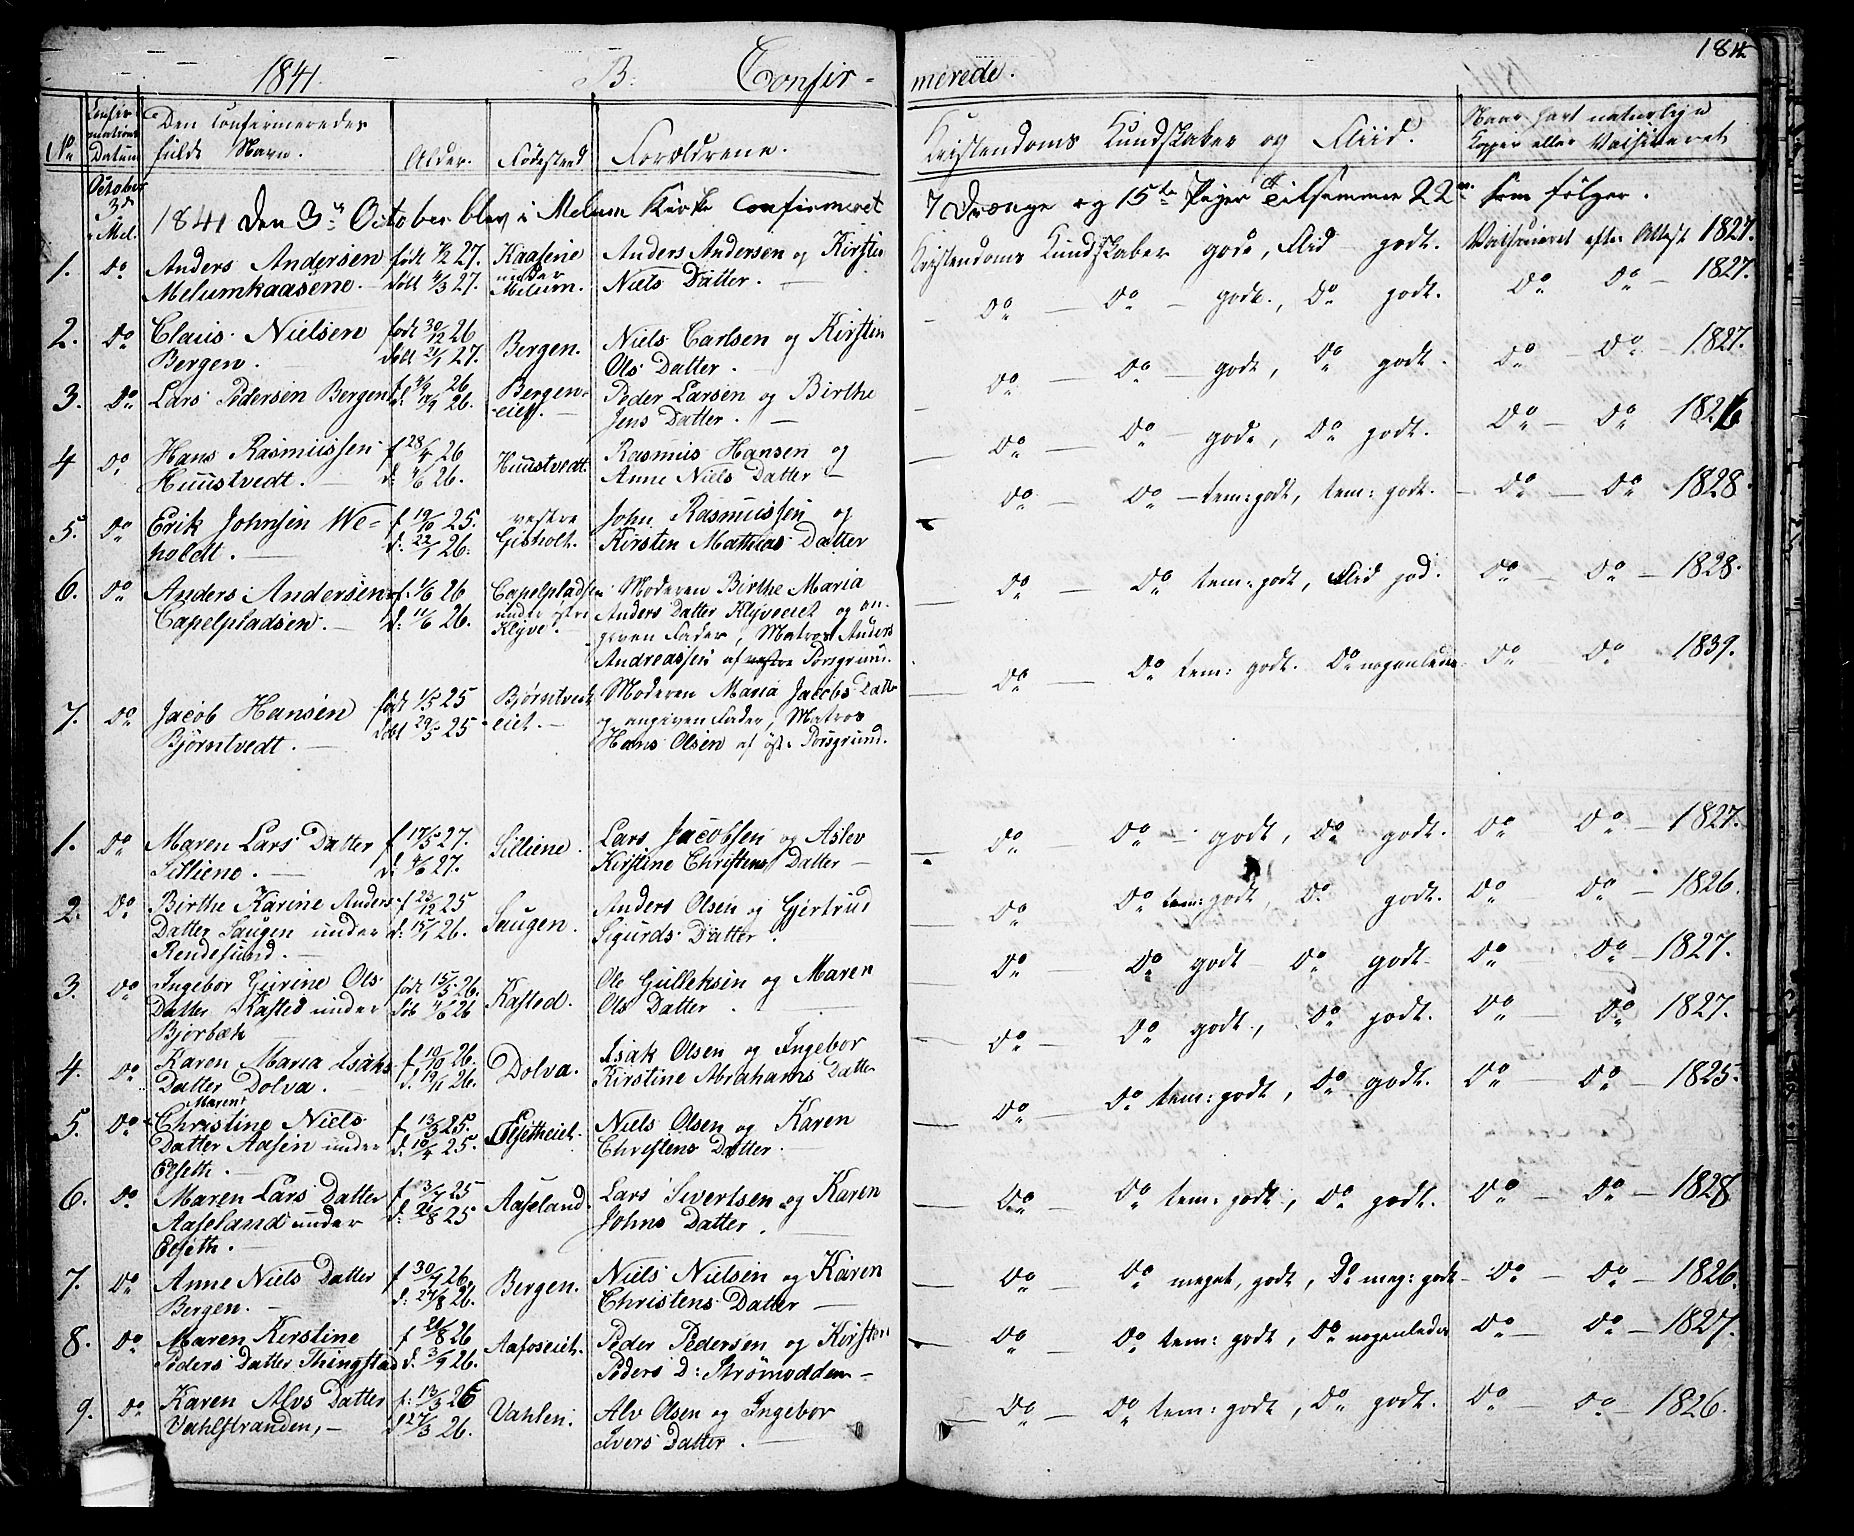 184
1841. B. Confir-
merede.
No
Confir-
mations
Datum
Den Confirmeredes
fulde Navn.
Alder.
Fødested
Forældrene.
Kristendoms Kundskaber og Fliid.
Naar havt naturlige
Kopper eller Vaksineret
October
3d
i Mel.
1841 den 3die October blev i Melum Kirke Confirmeret
7 Drænge og 15te Piger Tilsammen 22 som følger.
1. Do Anders Andersen født 27. Kaasene Anders Andersen og Kirsten Kristendoms Kundskaber gode, Flid godt. Vaksineret efter Attest 1827.
Melumkaasene. døbt 4/3 27. under Melum. Niels Datter.
2. Do Claus Nielsen født 30/12 26 Bergen. Niels Carlsen og Kirsten Do Do gode, Do godt. Do Do 1827.
Bergen. døbt 21/1 27. Ols Datter.
3. Do Lars Pedersen Bergen 26 Bergen- Peder Larsen og Birthe Do Do gode, Do godt. Do Do 1827.
26. eiet. Jens Datter.
4 Do Hans Rasmussen f 28/4 26 Huustvedt. Rasmus Hansen og Do Do gode, Do godt. Do Do 1826
Huustvedt. d: 26. Anne Niels Datter
5. Do Erik Johnsen We- f 19/10 25. vestre John Rasmussen og Do Do tem: godt, tem: godt. Do Do 1828.
holdt. d: 22/1 26. Gisholt. Kirsten Mathias Datter
6. Do Anders Andersen f. 1/6 26 Capelpladsen Moderen Birthe Maria Do Do tem: godt, Flid god. Do Do 1828.
Capelpladsen. d: 11/6 26. under østre Anders Datter Klyveeiet og an-
Klyve. given Fader, Matros Anders
Andreassen af vestre Porsgrund.
7. Do Jacob Hansen født 1/5 25 Bjørntvedt Moderen Maria Jacobs Datter Do Do tem: godt. Do nogenledes Do Do 1839.
Bjørntvedt. døbt 29/5 25 eiet. og angiven Fader, Matros
Hans Olsen af øst. Porsgrund.
1. Do Maren Lars Datter f 17/5 27. Silliene. Lars Jacobsen og Aslev Do Do godt, Do godt. Do Do 1827.
Silliene. d. 4/6 27. Kirstine Christens Datter
2. Do Birthe Karine Anders f 23/12 25 Saugen. Anders Olsen og Gjertrud Do Do tem: godt, Do godt. Do Do 1826.
Datter Saugen under d: 15/1 26. Sigurds Datter.
Rendesund.
3. Do Ingebor Gurine Ols født 15/5 26. Kasted. Ole Gulleksen og Maren Do Do godt Do godt Do Do 1827.
Datter Kasted under døb 4/6 26 Ols Datter.
Bjorbæk
4. Do Karen Maria Isaks f 19/10 26. Dolva. Isak Olsen og Ingebor Do Do godt, Do godt. Do Do 1827.
Datter Dolva. d. 19/11 26. Kirstine Abrahams Datter
Maren
5. Do Christine Niels f. 13/3 25. Elsetheiet. Niels Olsen og Karen Do Do tem: godt, Do godt. Do Do 1825.
Datter Aasen under d. 10/4 25. Christens Datter.
Elseth.
6. Do Maren Lars Datter f 13/7 25 Aaseland. Lars Sivertsen og Karen Do Do tem: godt, Do godt. Do Do 1828
Aaseland under d: 21/8 25 Johns Datter.
Elseth.
7. Do Anne Niels Datter f 30/7 26. Bergen. Niels Nielsen og Karen Do Do meget godt, Do meg: godt Do Do 1826.
Bergen. d: 27/8 26. Christens Datter
8. Do Maren Kirstine f 20/8 26 Aafoseiet. Peder Pedersen og Kirsten Do Do tem: godt, Do nogenledes Do Do 1827.
Peders Datter Thingstad d. 3/9 26. Peders D: Strømodden
9. Do Karen Alvs Datter f: 13/3 26 Vahlen. Alv Olsen og Ingebor Do Do tem: godt, Do godt. Do Do 1826.
Vahlstranden, d 27/3 26. Ivers Datter.